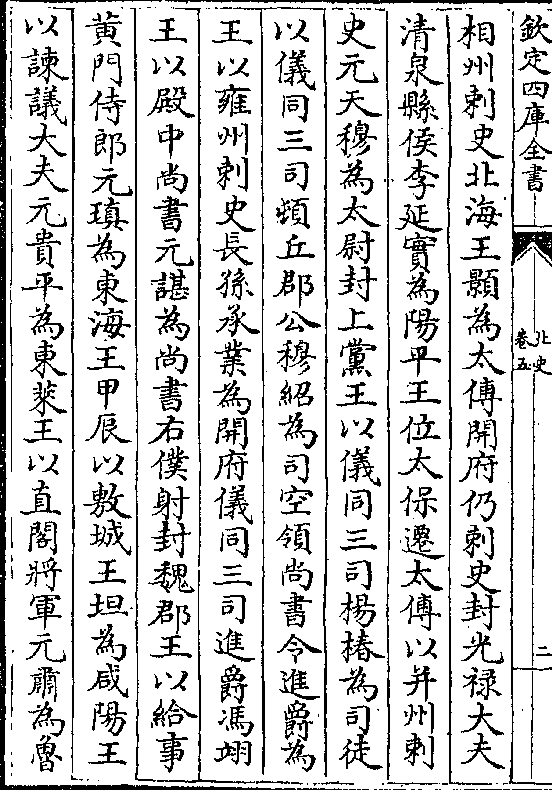 欽定四庫全書
北史
卷五
二
相州刺史北海王顥為太傅開府仍刺史封光禄大夫
清泉縣侯李延實為陽平王位太保遷太傅以并州刺
史元天穆為太尉封上黨王以儀同三司楊椿為司徒
以儀同三司頓丘郡公穆紹為司空領尚書令進爵為
王以雍州刺史長孫承業為開府儀同三司進爵馮翊
王以殿中尚書元諶為尚書右僕射封魏郡王以給事
黄門侍郎元瑱為東海王甲辰以敷城王坦為咸陽王
以諫議大夫元貴平為東萊王以直閣將軍元肅為魯